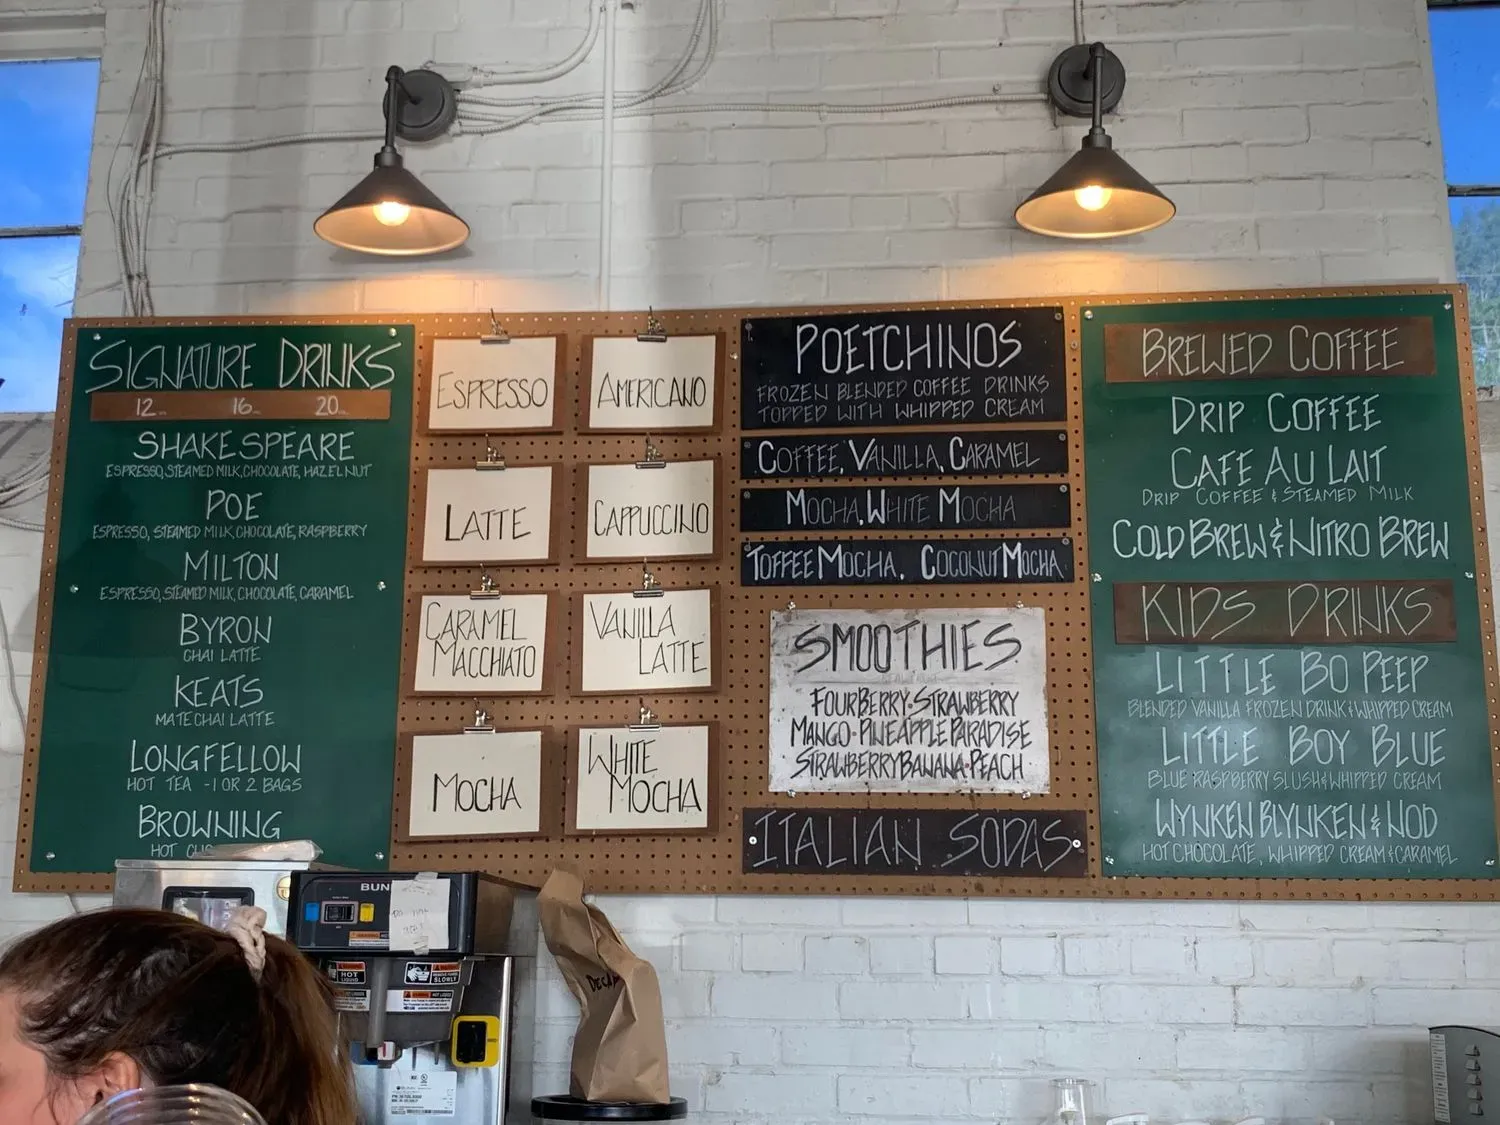 SIGNATURE DRINKS
12 16 20
SHAKESPEARE
ESPRESSO, STEAMED MILK, CHOCOLATE, HAZELNUT
POE
ESPRESSO, STEAMED MILK, CHOCOLATE, RASPBERRY
MILTON
ESPRESSO, STEAMED MILK, CHOCOLATE, CARAMEL
BYRON
CHAI LATTE
KEATS
MATECHAI LATTE
LONGFELLOW
HOT TEA - 1 OR 2 BAGS
BROWNING
HOT
ESPRESSO
AMERICANO
LATTE
CAPPUCCINO
CARAMEL
MACCHIATO
VANILLA
LATTE
MOCHA
WHITE
MOCHA
POETCHINOS
FROZEN BLENDED COFFEE DRINKS
TOPPED WITH WHIPPED CREAM
COFFEE, VANILLA, CARAMEL
MOCHA, WHITE MOCHA
TOFFEE MOCHA, COCONUT MOCHA
SMOOTHIES
FOURBERRY-STRAWBERRY
MANGO-PINEAPPLE PARADISE
STRAWBERRY BANANA-PEACH
ITALIAN SODAS
BREWED COFFEE
DRIP COFFEE
CAFE AU LAIT
DRIP COFFEE & STEAMED MILK
COLD BREW & NITRO BREW
KIDS DRINKS
LITTLE BO PEEP
BLENDED VANILLA FROZEN DRINK & WHIPPED CREAM
LITTLE BOY BLUE
BLUE RASPBERRY SLUSH & WHIPPED CREAM
WYNKEN BLYNKEN & NOD
HOT CHOCOLATE, WHIPPED CREAM & CARAMEL
BUNN
HOT
LIQUID
SLOWLY